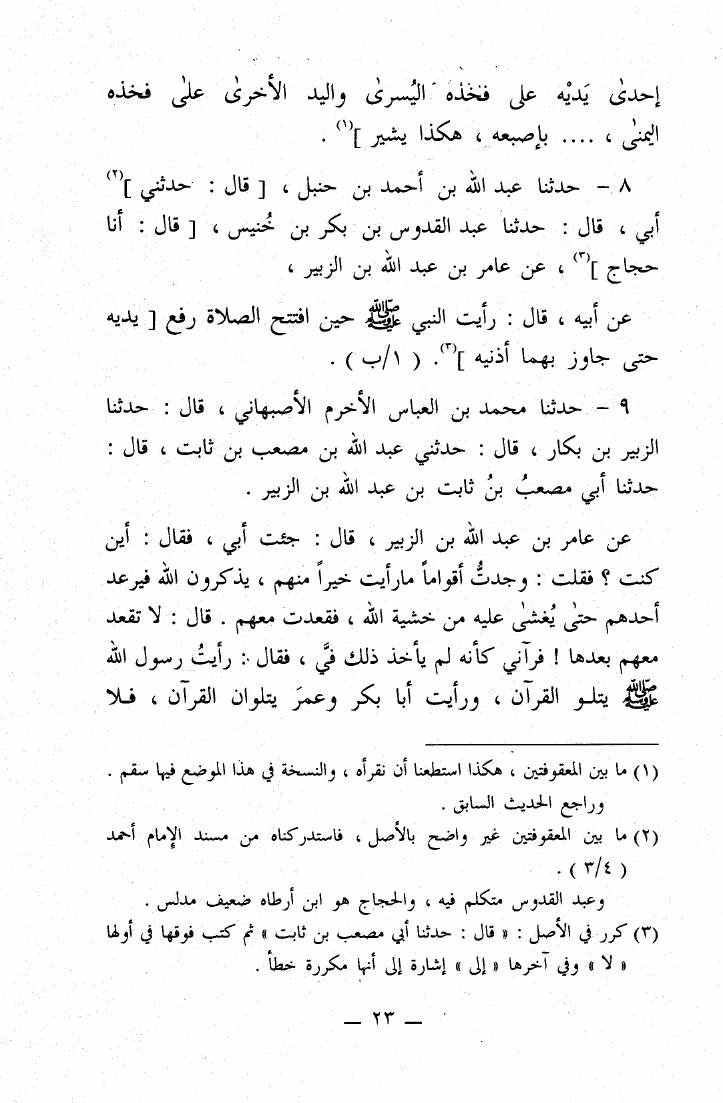 إحدىٰ يَدَيْه على فخذه اليُسرىٰ واليد الأخرىٰ علىٰ فخذه
اليمنىٰ ، .... بإصبعه ، هكذا يشير ](١) .
٨ – حدثنا عبد الله بن أحمد بن حنبل ، [ قال : حدثني ](٢)
أبي ، قال : حدثنا عبد القدوس بن بكر بن خُنيس ، [ قال : أنا
حجاج ](٣) ، عن عامر بن عبد الله بن الزبير ،
عن أبيه ، قال : رأيت النبي ﷺ حين افتتح الصلاة رفع [ يديه
حتى جاوز بهما أذنيه ](٣). ( ١/ب ) .
٩ – حدثنا محمد بن العباس الأخرم الأصبهاني ، قال : حدثنا
الزبير بن بكار ، قال : حدثني عبد الله بن مصعب بن ثابت ، قال :
حدثنا أبي مصعبُ بنُ ثابت بن عبد الله بن الزبير .
عن عامر بن عبد الله بن الزبير ، قال : جئت أبي ، فقال : أين
كنت ؟ فقلت : وجدتُّ أقواماً مارأيت خيراً منهم ، يذكرون الله فيرعد
أحدهم حتىٰ يُغشىٰ عليه من خشية الله ، فقعدت معهم . قال : لا تقعد
معهم بعدها ! فرآني كأنه لم يأخذ ذلك فيَّ ، فقال : رأيتُ رسول الله
ﷺ يتلو القرآن ، ورأيت أبا بكر وعمرَ يتلوان القرآن ، فلا
(١) ما بين المعقوفتين ، هكذا استطعنا أن نقرأه ، والنسخة في هذا الموضع فيها سقم .
وراجع الحديث السابق .
(٢) ما بين المعقوفتين غير واضح بالأصل ، فاستدركناه من مسند الإمام أحمد
( ٣/٤ ) .
وعبد القدوس متكلم فيه ، والحجاج هو ابن أرطاه ضعيف مدلس .
(٣) كرر في الأصل : « قال : حدثنا أبي مصعب بن ثابت » ثم كتب فوقها في أولها
« لا » وفي آخرها « إلى » إشارة إلى أنها مكررة خطأ .
— ٢٣ —